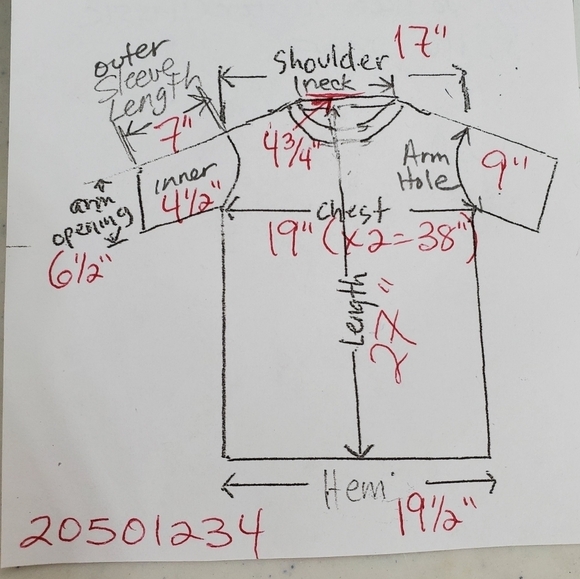 outer
Sleeve
Length
7"
Shoulder
17"
neck
4 3/4"
Arm
Hole
9"
inner
4 1/2"
arm
opening
6 1/2"
chest
19" (x2=38")
Length
27"
Hem
19 1/2"
20501234